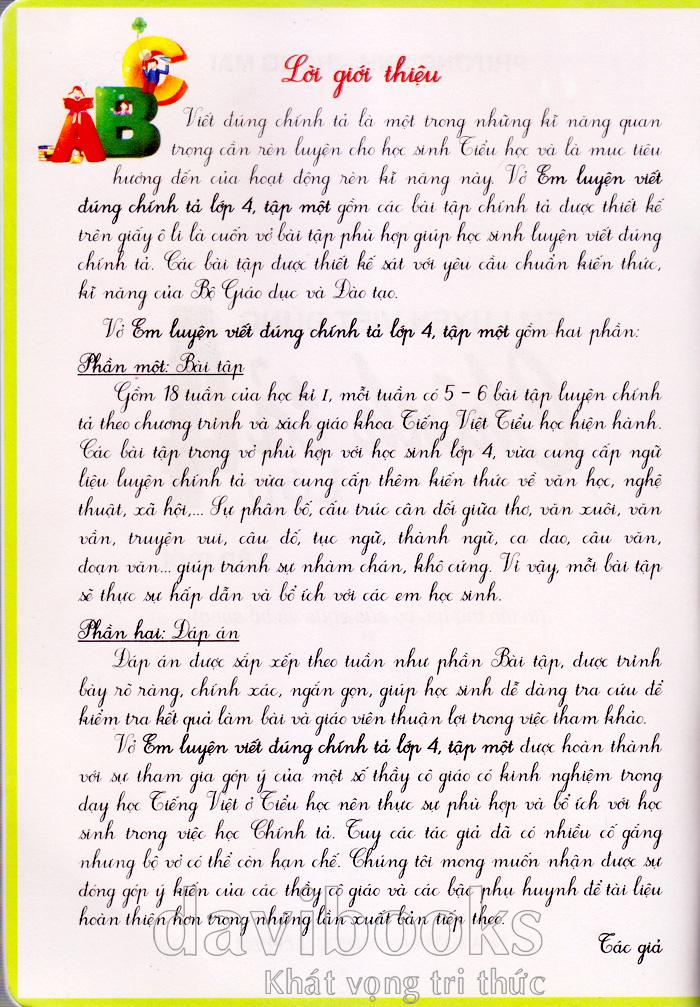 ABC
Lời giới thiệu
Viết đúng chính tả là một trong những kĩ năng quan
trọng cần rèn luyện cho học sinh Tiểu học và là mục tiêu
hướng đến của hoạt động rèn kĩ năng này. Vở Em luyện viết
đúng chính tả lớp 4, tập một gồm các bài tập chính tả được thiết kế
trên giấy ô li là cuốn vở bài tập phù hợp giúp học sinh luyện viết đúng
chính tả. Các bài tập được thiết kế sát với yêu cầu chuẩn kiến thức,
kĩ năng của Bộ Giáo dục và Đào tạo.
Vở Em luyện viết đúng chính tả lớp 4, tập một gồm hai phần:
Phần một: Bài tập
Gồm 18 tuần của học kì I, mỗi tuần có 5 - 6 bài tập luyện chính
tả theo chương trình và sách giáo khoa Tiếng Việt Tiểu học hiện hành.
Các bài tập trong vở phù hợp với học sinh lớp 4, vừa cung cấp ngữ
liệu luyện chính tả vừa cung cấp thêm kiến thức về văn học, nghệ
thuật, xã hội,... Sự phân bố, cấu trúc cân đối giữa thơ, văn xuôi, văn
vần, truyện vui, câu đố, tục ngữ, thành ngữ, ca dao, câu văn,
đoạn văn... giúp tránh sự nhàm chán, khô cứng. Vì vậy, mỗi bài tập
sẽ thực sự hấp dẫn và bổ ích với các em học sinh.
Phần hai: Đáp án
Đáp án được sắp xếp theo tuần như phần Bài tập, được trình
bày rõ ràng, chính xác, ngắn gọn, giúp học sinh dễ dàng tra cứu để
kiểm tra kết quả làm bài và giáo viên thuận lợi trong việc tham khảo.
Vở Em luyện viết đúng chính tả lớp 4, tập một được hoàn thành
với sự tham gia góp ý của một số thầy cô giáo có kinh nghiệm trong
dạy học Tiếng Việt ở Tiểu học nên thực sự phù hợp và bổ ích với học
sinh trong việc học Chính tả. Tuy các tác giả đã có nhiều cố gắng
nhưng bộ vở có thể còn hạn chế. Chúng tôi mong muốn nhận được sự
đóng góp ý kiến của các thầy cô giáo và các bậc phụ huynh để tài liệu
hoàn thiện hơn trong những lần xuất bản tiếp theo.
Tác giả
davibooks
Khát vọng tri thức